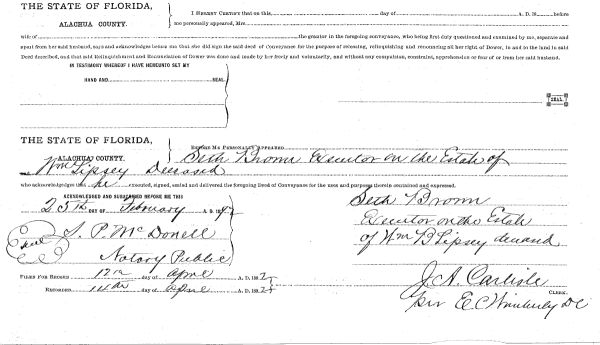 THE STATE OF FLORIDA,
ALACHUA COUNTY.
I HEREBY CERTIFY that on this, day of A. D. 18 before
me personally appeared, Mrs.
wife of the grantor in the foregoing conveyance, who being first duly questioned and examined by me, separate and
apart from her said husband, says and acknowledges before me that she did sign the said deed of Conveyance for the purpose of releasing, relinquishing and renouncing all her right of Dower, in and to the land in said
Deed described, and that said Relinquishment and Renunciation of Dower was done and made by her freely and voluntarily, and without any compulsion, constraint, apprehension or fear of or from her said husband.
IN TESTIMONY WHEREOF I HAVE HEREUNTO SET MY
HAND AND SEAL
SEAL
THE STATE OF FLORIDA,
ALACHUA COUNTY.
BEFORE ME PERSONALLY APPEARED
Seth Brown Executor on the Estate of
Wm Lipsey Deceased
who acknowledges that he executed, signed, sealed and delivered the foregoing Deed of Conveyance for the uses and purposes therein contained and expressed.
ACKNOWLEDGED AND SUBSCRIBED BEFORE ME THIS
25th DAY OF February A. D. 189
Seal S. P. McDonell
Notary Public
FILED FOR RECORD 12th day of April A. D. 1892
RECORDED 14th day of April A. D. 1892
Seth Brown
Executor on the Estate
of Wm B Lipsey deceased
J. A. Carlisle
CLERK.
per E C Wimberly DC